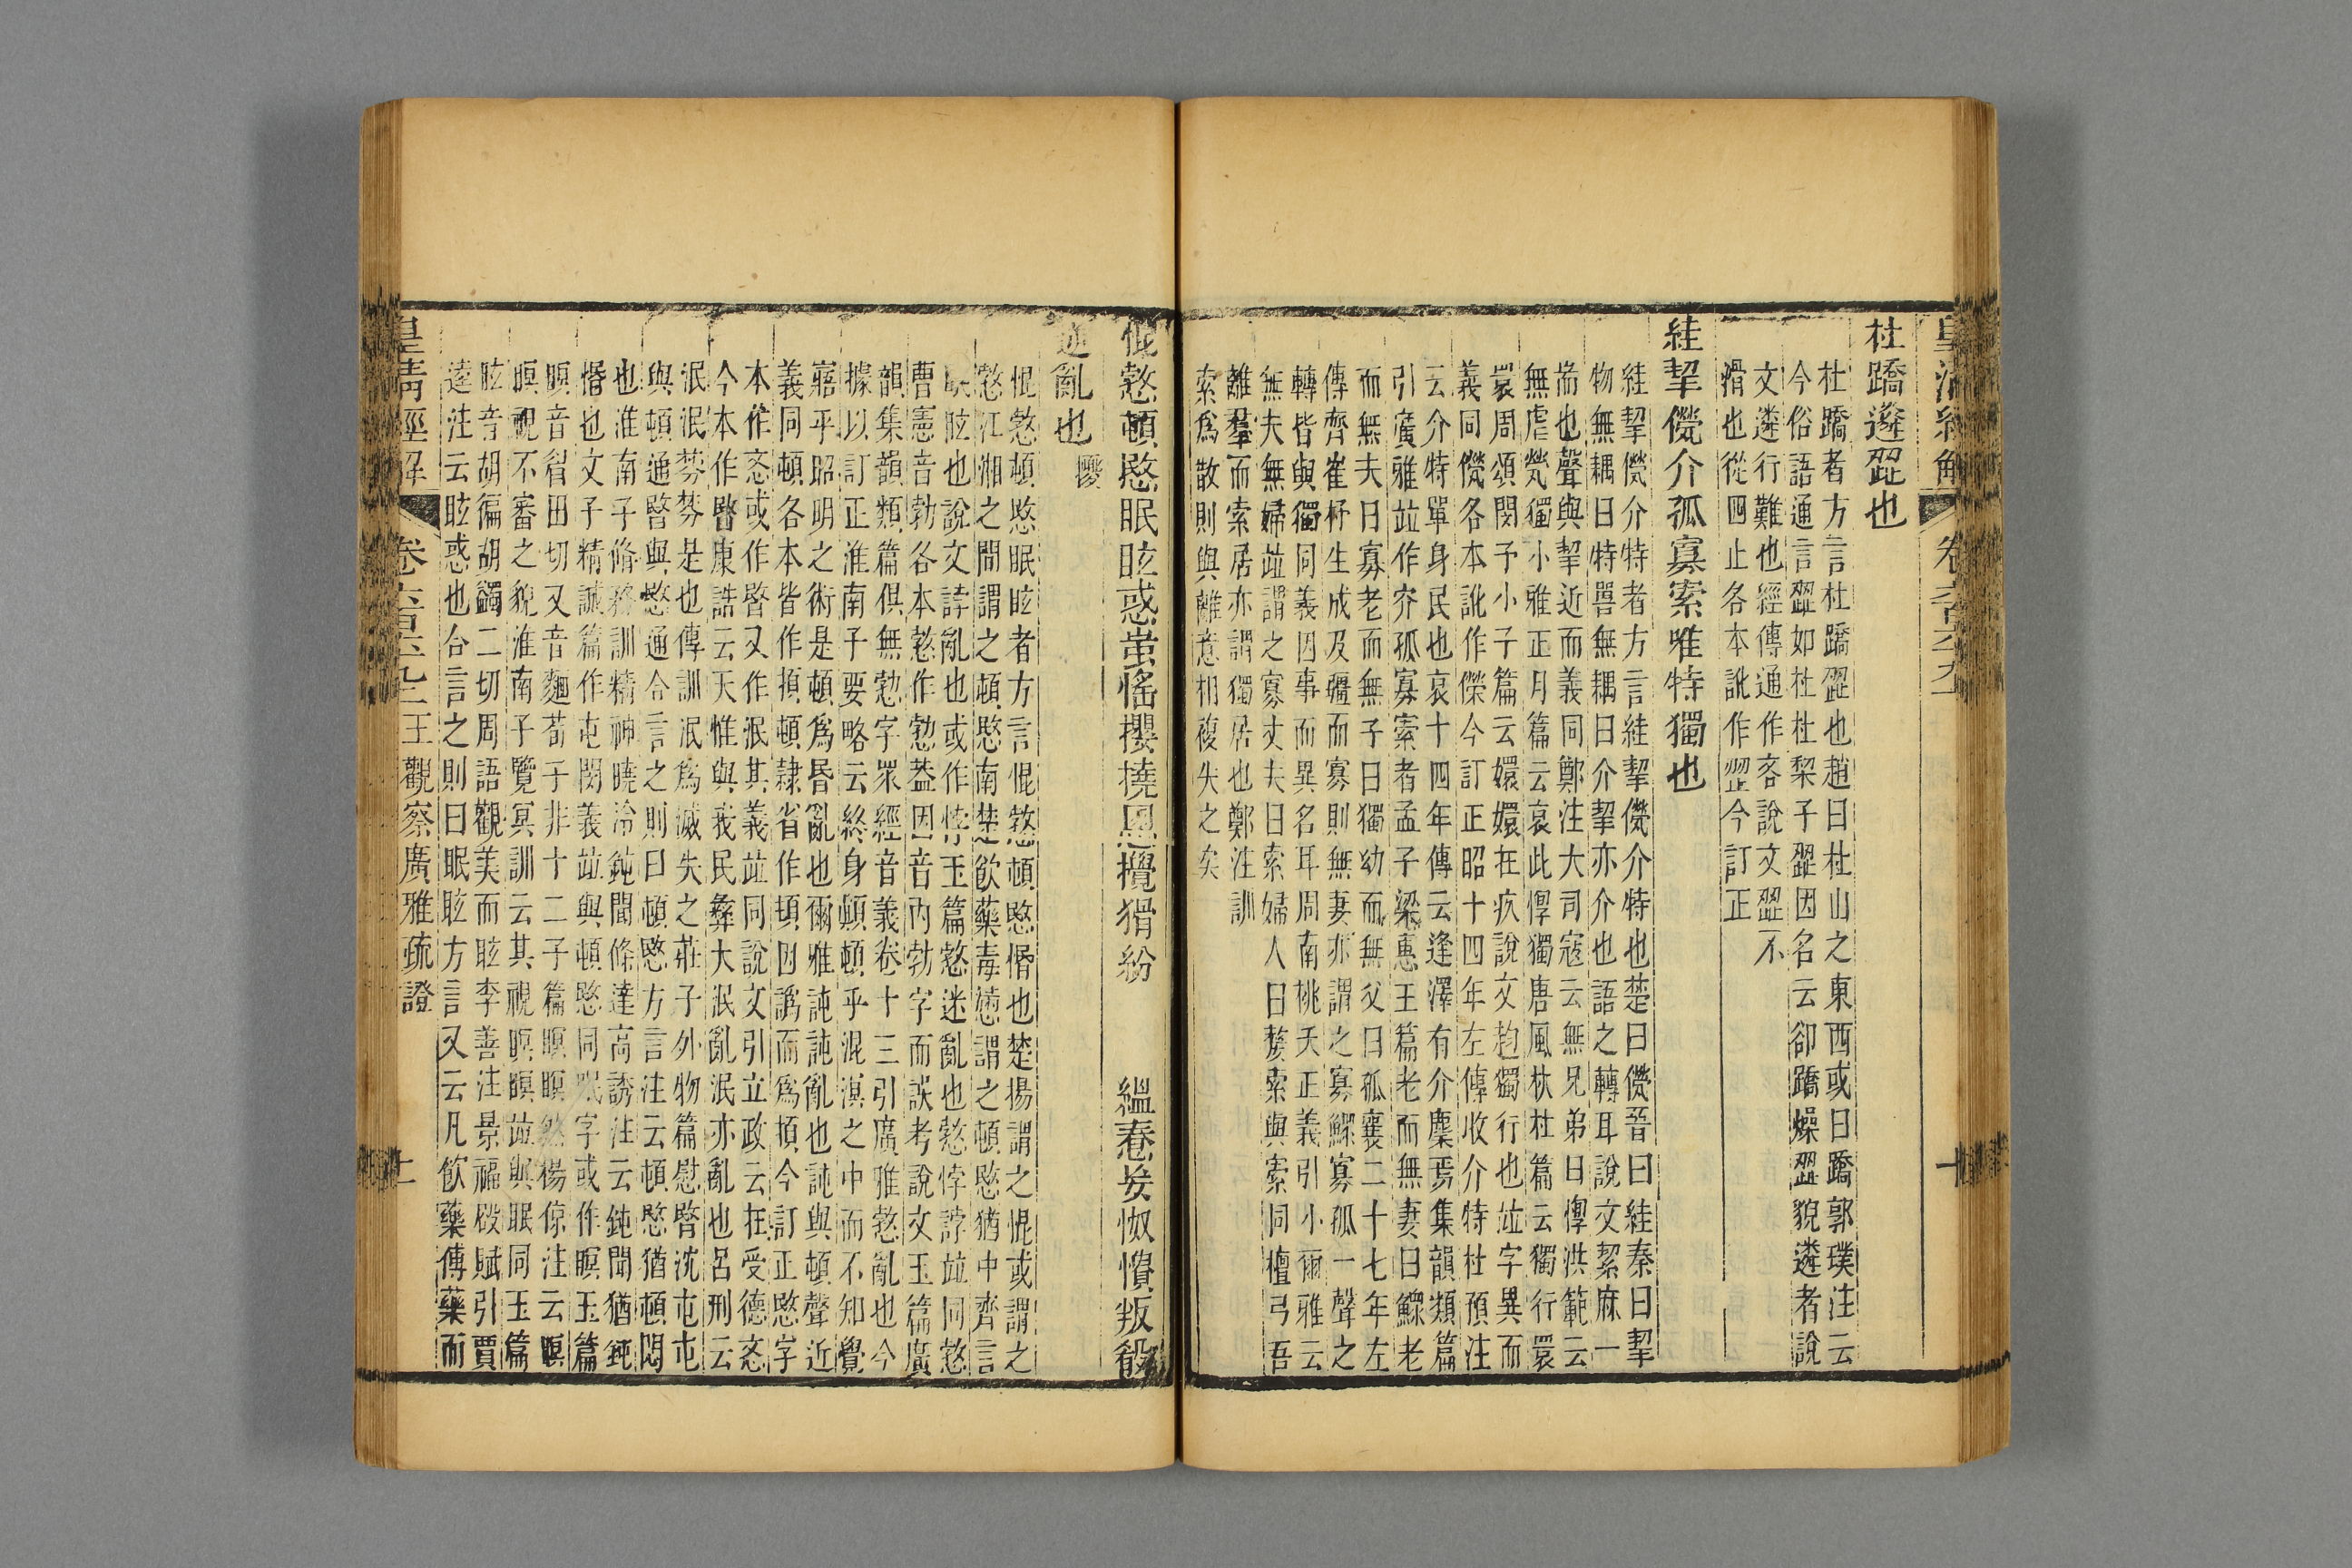 杜蹻遴歰也
杜蹻者方言杜蹻歰也趙曰杜山之東西或曰蹻郭璞注云
今俗語通言歰如杜杜棃子歰因名云卻蹻燥歰貌遴者說
文遴行難也經傳通作吝說文歰不
滑也從四止各本訛作澀今訂正
絓挈㒯介孤寡索唯特獨也
絓挈㒯介特者方言絓挈㒯介特也楚曰㒯晉曰絓秦曰挈
物無耦曰特嘼無耦曰介挈亦介也語之轉耳說文絜麻一
耑也聲與挈近而義同鄭注大司寇云無兄弟曰惸洪範云
無虐煢獨小雅正月篇云哀此惸獨唐風杕杜篇云獨行睘
睘周頌閔予小子篇云嬛嬛在疚說文趜獨行也竝字異而
義同㒯各本訛作傑今訂正昭十四年左傳收介特杜預注
云介特單身民也哀十四年傳云逢澤有介麇焉集韻類篇
引廣雅竝作夰孤寡索者孟子梁惠王篇老而無妻曰鰥老
而無夫曰寡老而無子曰獨幼而無父曰孤襄二十七年左
傳齊崔杼生成及疆而寡則無妻亦謂之寡鰥寡孤一聲之
轉皆與獨同義因事而異名耳周南桃夭正義引小爾雅云
無夫無婦竝謂之寡丈夫曰索婦人曰嫠索與索同檀弓吾
離羣而索居亦謂獨居也鄭注訓
索爲散則與離意相複失之矣
惃憗頓愍眠眩惑蚩愮攖撓恩攪猾紛縕惷妛怓憒叛殽
逆亂也㥚
惃憗頓愍眠眩者方言惃憗頓愍惛也楚揚謂之惃或謂之
憗江湘之間謂之頓愍南楚飮藥毒懣謂之頓愍猶中齊言
眠眩也說文誖亂也或作悖玉篇憗迷亂也憗悖誖竝同憗
曹憲音勃各本憗作㦎葢因音內勃字而誤考說文玉篇廣
韻集韻類篇俱無㦎字眾經音義卷十三引廣雅憗亂也今
據以訂正淮南子要略云終身頓頓乎混溟之中而不知覺
寤乎昭明之術是頓爲昏亂也爾雅訰訰亂也訰與頓聲近
義同頓各本皆作損頓隸省作頓因譌而爲損今訂正愍字
本作忞或作暋又作泯其義竝同說文引立政云在受德忞
今本作暋康誥云天惟與我民彝大泯亂泯亦亂也呂刑云
泯泯棼棼是也傳訓泯爲滅失之莊子外物篇慰暋沈屯屯
與頓通暋與愍通合言之則曰頓愍方言注云頓愍猶頓悶
也淮南子脩務訓精神曉泠鈍聞條達高誘注云鈍聞猶鈍
惛也文子精誠篇作屯閔義竝與頓愍同眠字或作瞑玉篇
瞑音眉田切又音麵荀子非十二子篇瞑瞑然楊倞注云瞑
瞑視不審之貌淮南子覽冥訓云其視瞑瞑竝與眠同玉篇
眩音胡徧胡蠲二切周語觀美而眩李善注景福殿賦引賈
逵注云眩惑也合言之則曰眠眩方言又云凡飮藥傅藥而
皇清經解 卷六百六十九上 王觀察廣雅疏證 十一